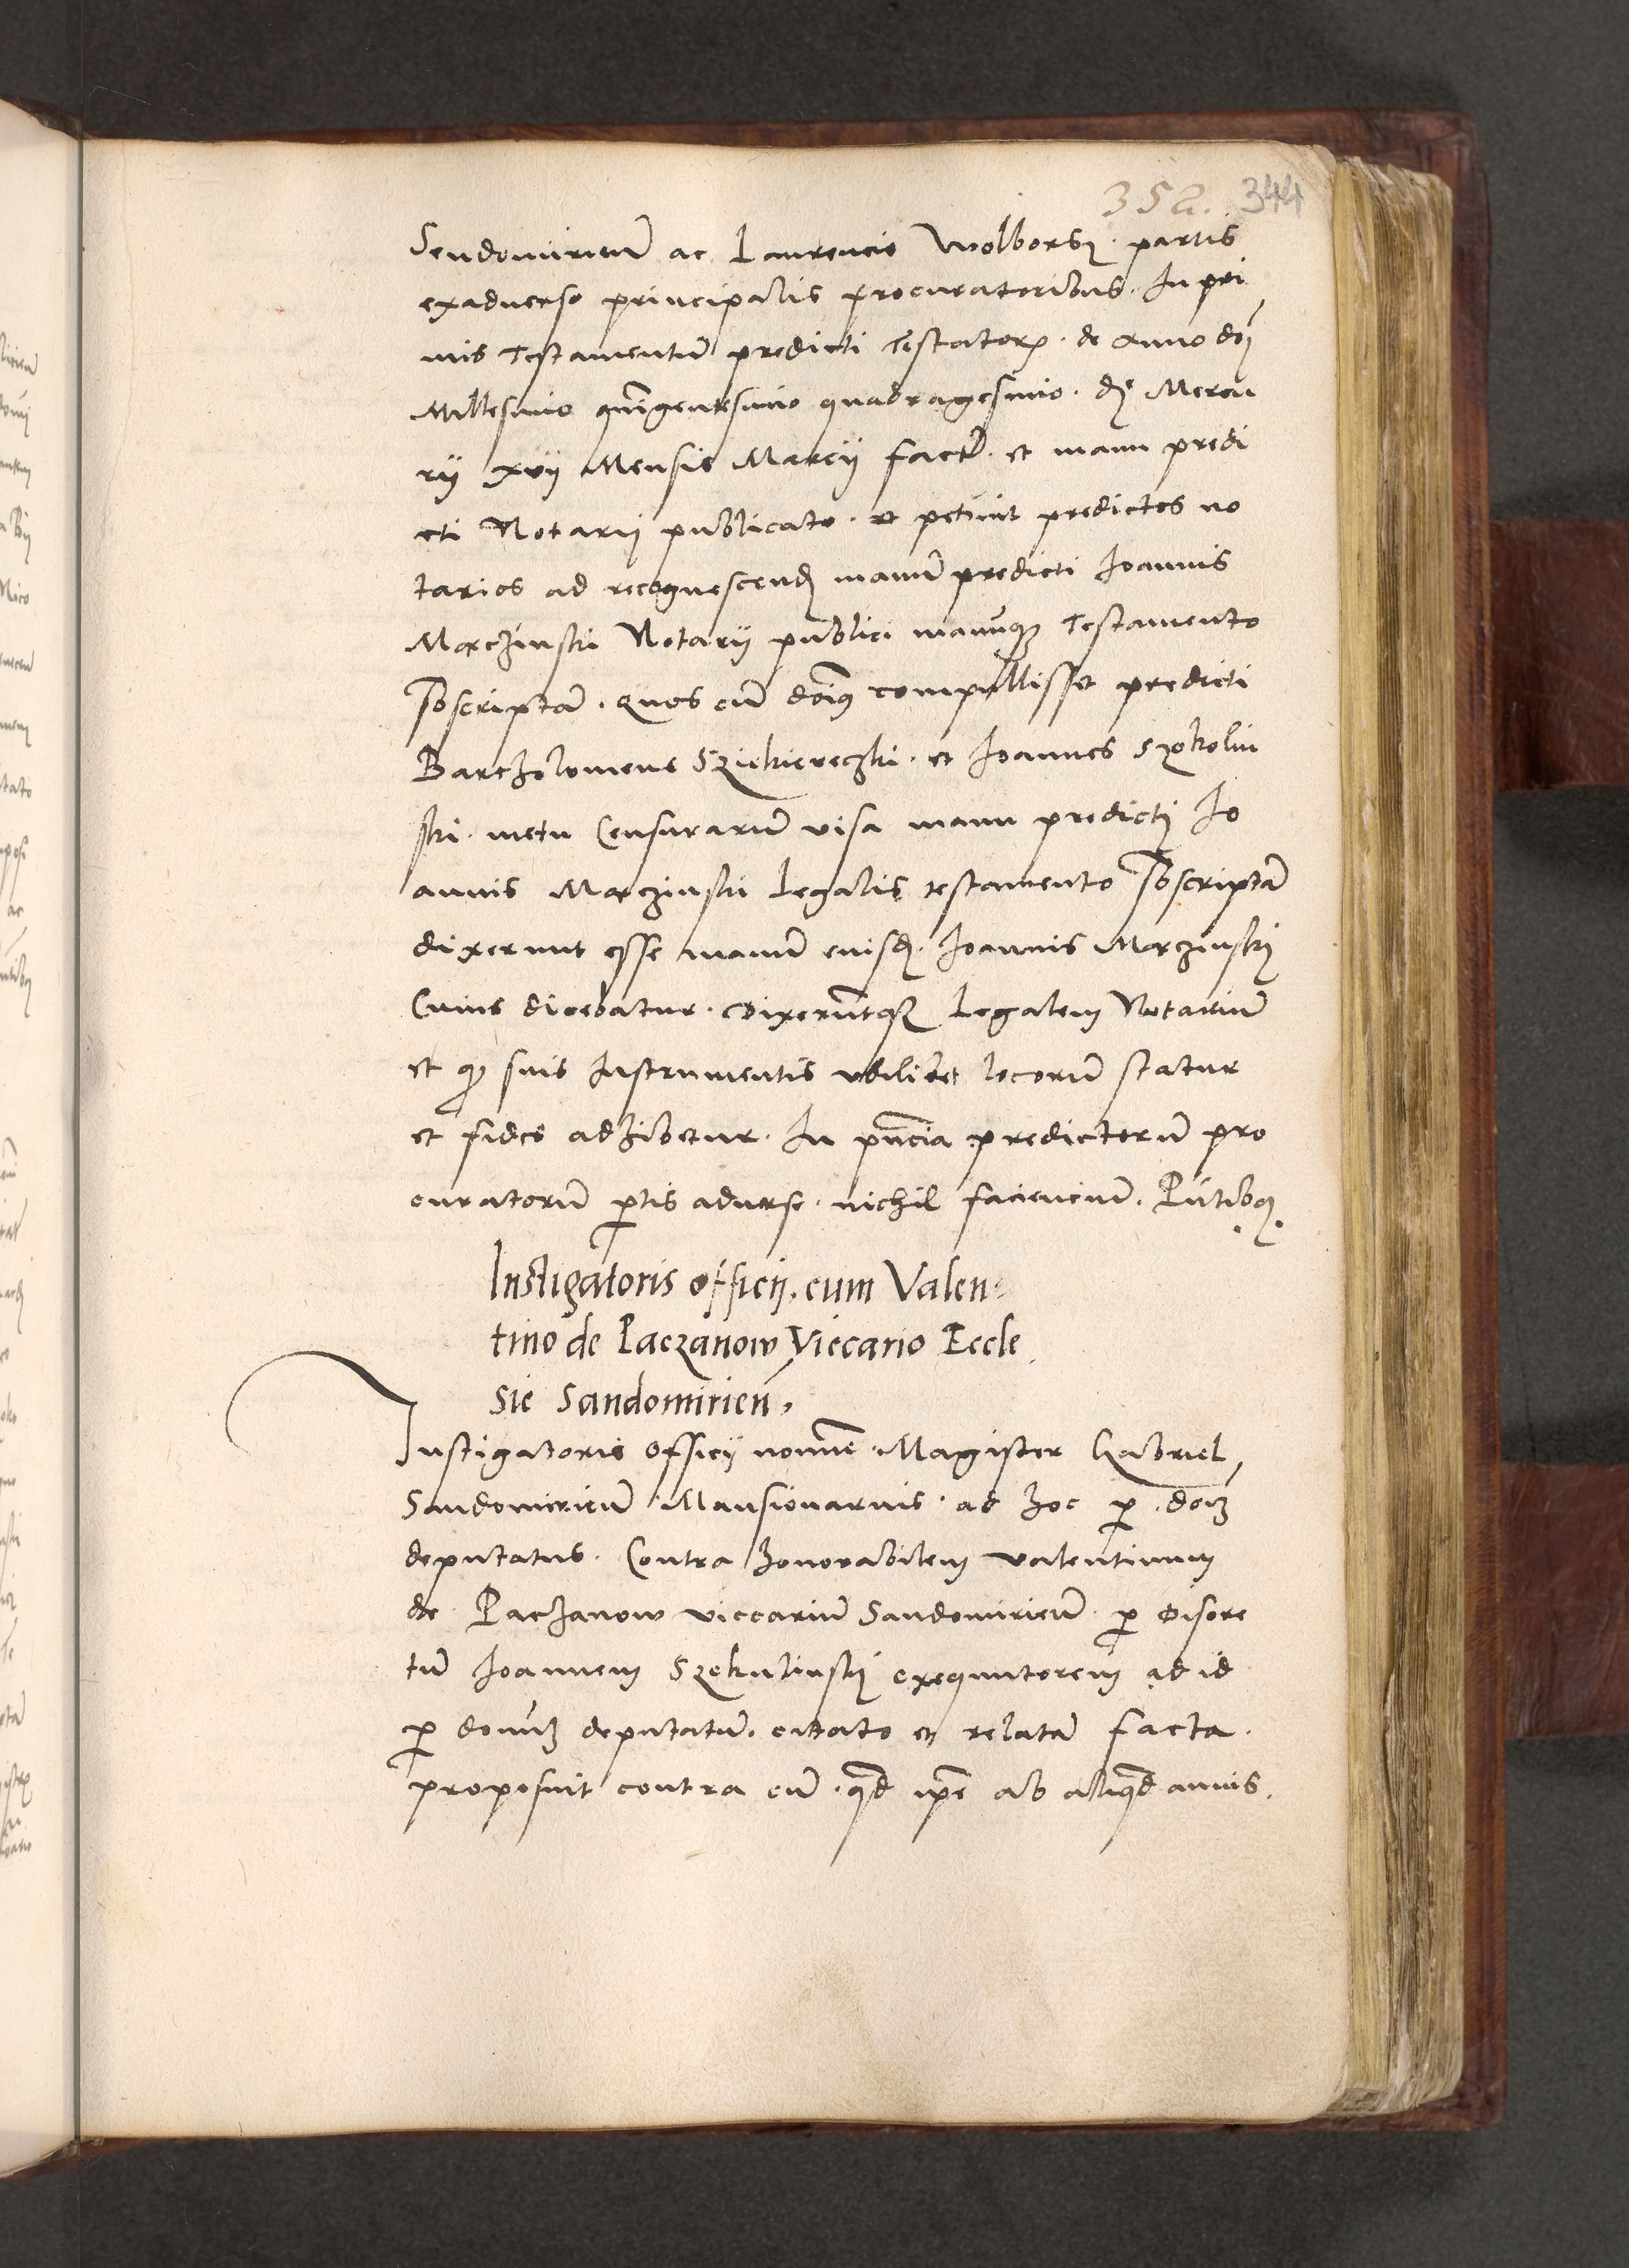 352. 344
Sendomirien̄ ac Laurencio Wolborsky. partis
exaduerso principalis procuratoribus. In pri
mis Testamentū predicti Testatoris. de Anno dn̄i
Millesimo quīgentesimo quadragesimo. die Mercu
rij xvij Mensis Marcij factū. et manu predi
cti Notarij publicato. et petiuit predictos no
tarios ad recognoscend̄ manū predicti Joannis
Marczinski Notarij publici manumq3 Testamento
sbscriptā. Quos cū dn̄us compullisset predicti
Barthzolomeus Sziekiereczki. et Joannes Szokolin
ski. metu Censurarū visa manu predicti Jo
annis Marczinski Legalis testamento sbscriptā
dixerunt esse manū eiusd̄. Joannis Marczinski
Cuius dicebatur. Dixerūtq3 Legalem Notariū
et q̄ suis Instrumentis vbilibet locorū statur
et fides adhibetur. In pn̄cia predictorū pro
curatorū ptis aduerse. nichil faciencium. Pn̄tibq3.
Instigatoris officij. cum Valen=
tino de Paczanow Viccario Eccle
sie Sandomirien̄.
Instigatoris officij nomīe. Magister Gabriel
Sandomirien̄ Mansionarius. ad hoc p dn̄m
deputatus. Contra honorabilem valentinum
de Paczanow viccariū Sandomirien̄. p discre
tū Joannem Szokulinski exequutorem ad id
p domn̄3 deputatū. citato et relatā facta.
proposuit contra eū. qd̄ ip̄e ab aliqd̄ annis.